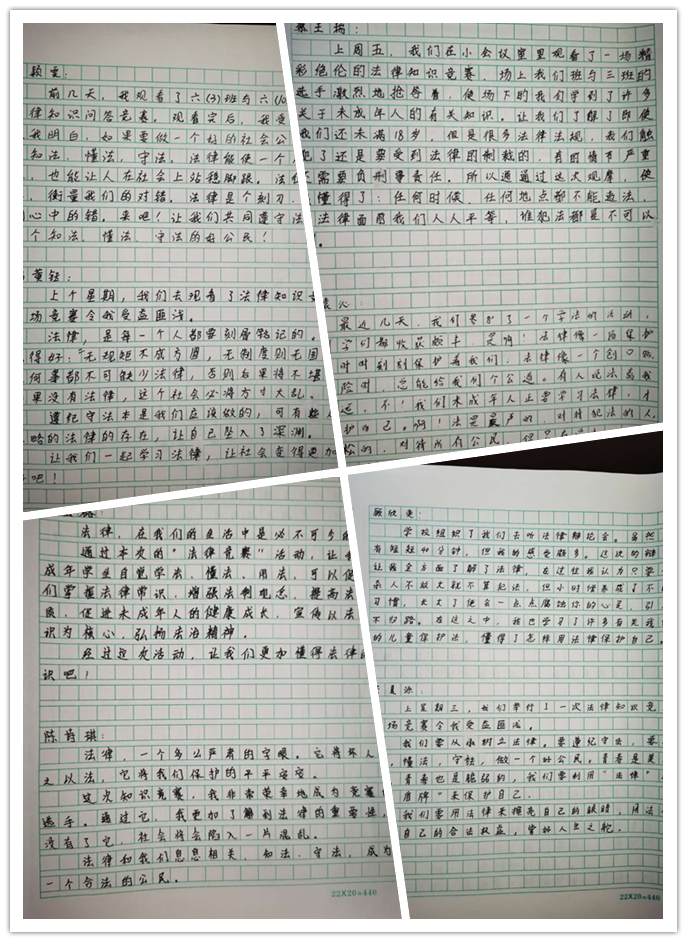 前几天，我观看了六(3)班与六(10
律知识问答竞赛，观看完后，我受
我明白，如果要做一个好的社会公
知法、懂法、守法。法律能使一个
，也能让人在社会上站稳脚跟，法
，衡量我们的对错，法律是个刻刀
心中的错。来吧！让我们共同遵守法
个知法、懂法、守法的好公民！
上个星期，我们去观看了法律知识竞
场竞赛令我受益匪浅。
法律，是每一个人都要刻骨铭记的。
得好："无规矩不成方圆，无制度则无国
何事都不可缺少法律，否则后果将不堪
果没有法律，这个社会必将方寸大乱。
遵纪守法本是我们应该做的，可有些人
略的法律的存在，让自己坠入了深渊。
让我们一起学习法律，让社会变得更加
吧！
上周五，我们在小会议室里观看了一场精
彩绝伦的法律知识竞赛，场上我们班与三班的
选手激烈地抢答着，使场下的我们学到了许多
关于未成年人的有关知识。让我们了解了即使
我们还未满18岁，但是很多法律法规，我们触
犯了还是要受到法律的制裁的，有的情节严重
还需要负刑事责任。所以通过这次观摩，使
懂得了：任何时候，任何地点都不能违法，
法律面前我们人人平等，谁犯法都是不可以
。
最近几天，我们参加了一个学法的活动，
学们都收获颇丰，是啊！法律像一盾保护
时时刻刻保护着我们，法律像一个
险时，总能给我们个公道。有人说法离我
远，不！我们未成年人正要学习法律，才
护自己。啊！法是最严的，对待犯法的人，
的，对待所有公民，
法律，在我们的生活中是必不可少的
通过本次的"法律竞赛"活动，让
成年学生自觉学法、懂法、用法，可以促
们掌握法律常识，增强法制观念，提高法
质，促进未成年人的健康成长，宣传以法
识为核心，弘扬法治精神。
经过这次活动，让我们更加懂得法律的
识吧！
陈莳琪：
法律，一个多么严肃的字眼。它将坏人
之以法，它将我们保护的平平安安。
这次知识竞赛，我非常荣幸地成为竞赛
选手。通过它，我更加了解到法律的重要性，
没有了它，社会将会陷入一片混乱。
法律和我们息息相关，知法、守法，成为
一个合法的公民。
22×20=440
顾欣
学校组织了我们去听法律辩论会。虽然
有短短40分钟，但我的感受颇多。这次的辩
让我全方面了解了法律，在过往我认为只要
杀人不放火就不算犯法，但小时候养成了不
习惯，长大了便会一点点腐蚀你的心灵，引
不归路。在这之中，我也学习了许多有关我
的儿童保护法，懂得了怎样用法律保护自己。
上星期三，我们举行了一次法律知识竞
场竞赛令我受益匪浅。
我们要从小树立法律。要遵纪守法，要
、懂法，守法，做一个好公民。青春是美
青春也是脆弱的，我们要利用"法律"
盾牌"来保护自己。
我们要用法律来擦亮自己的眼睛，用法
自己的合法权益，掌好人生之舵。
22×20=440